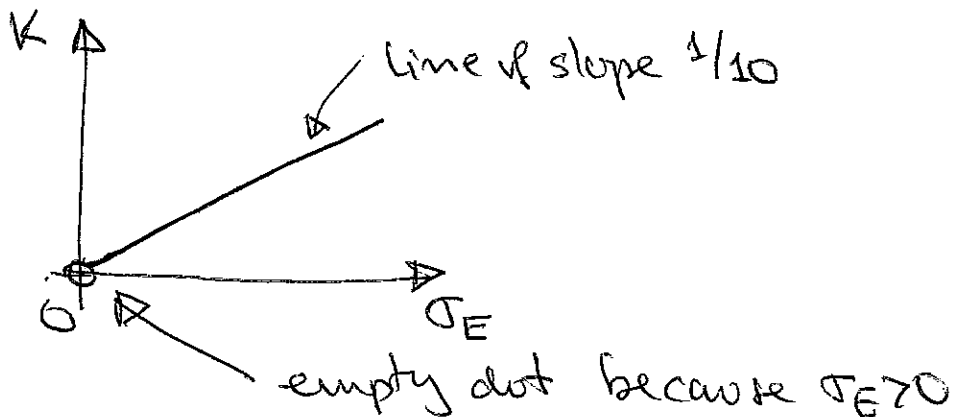 K
line of slope 1/10
0
σ_E
empty dot because σ_E>0